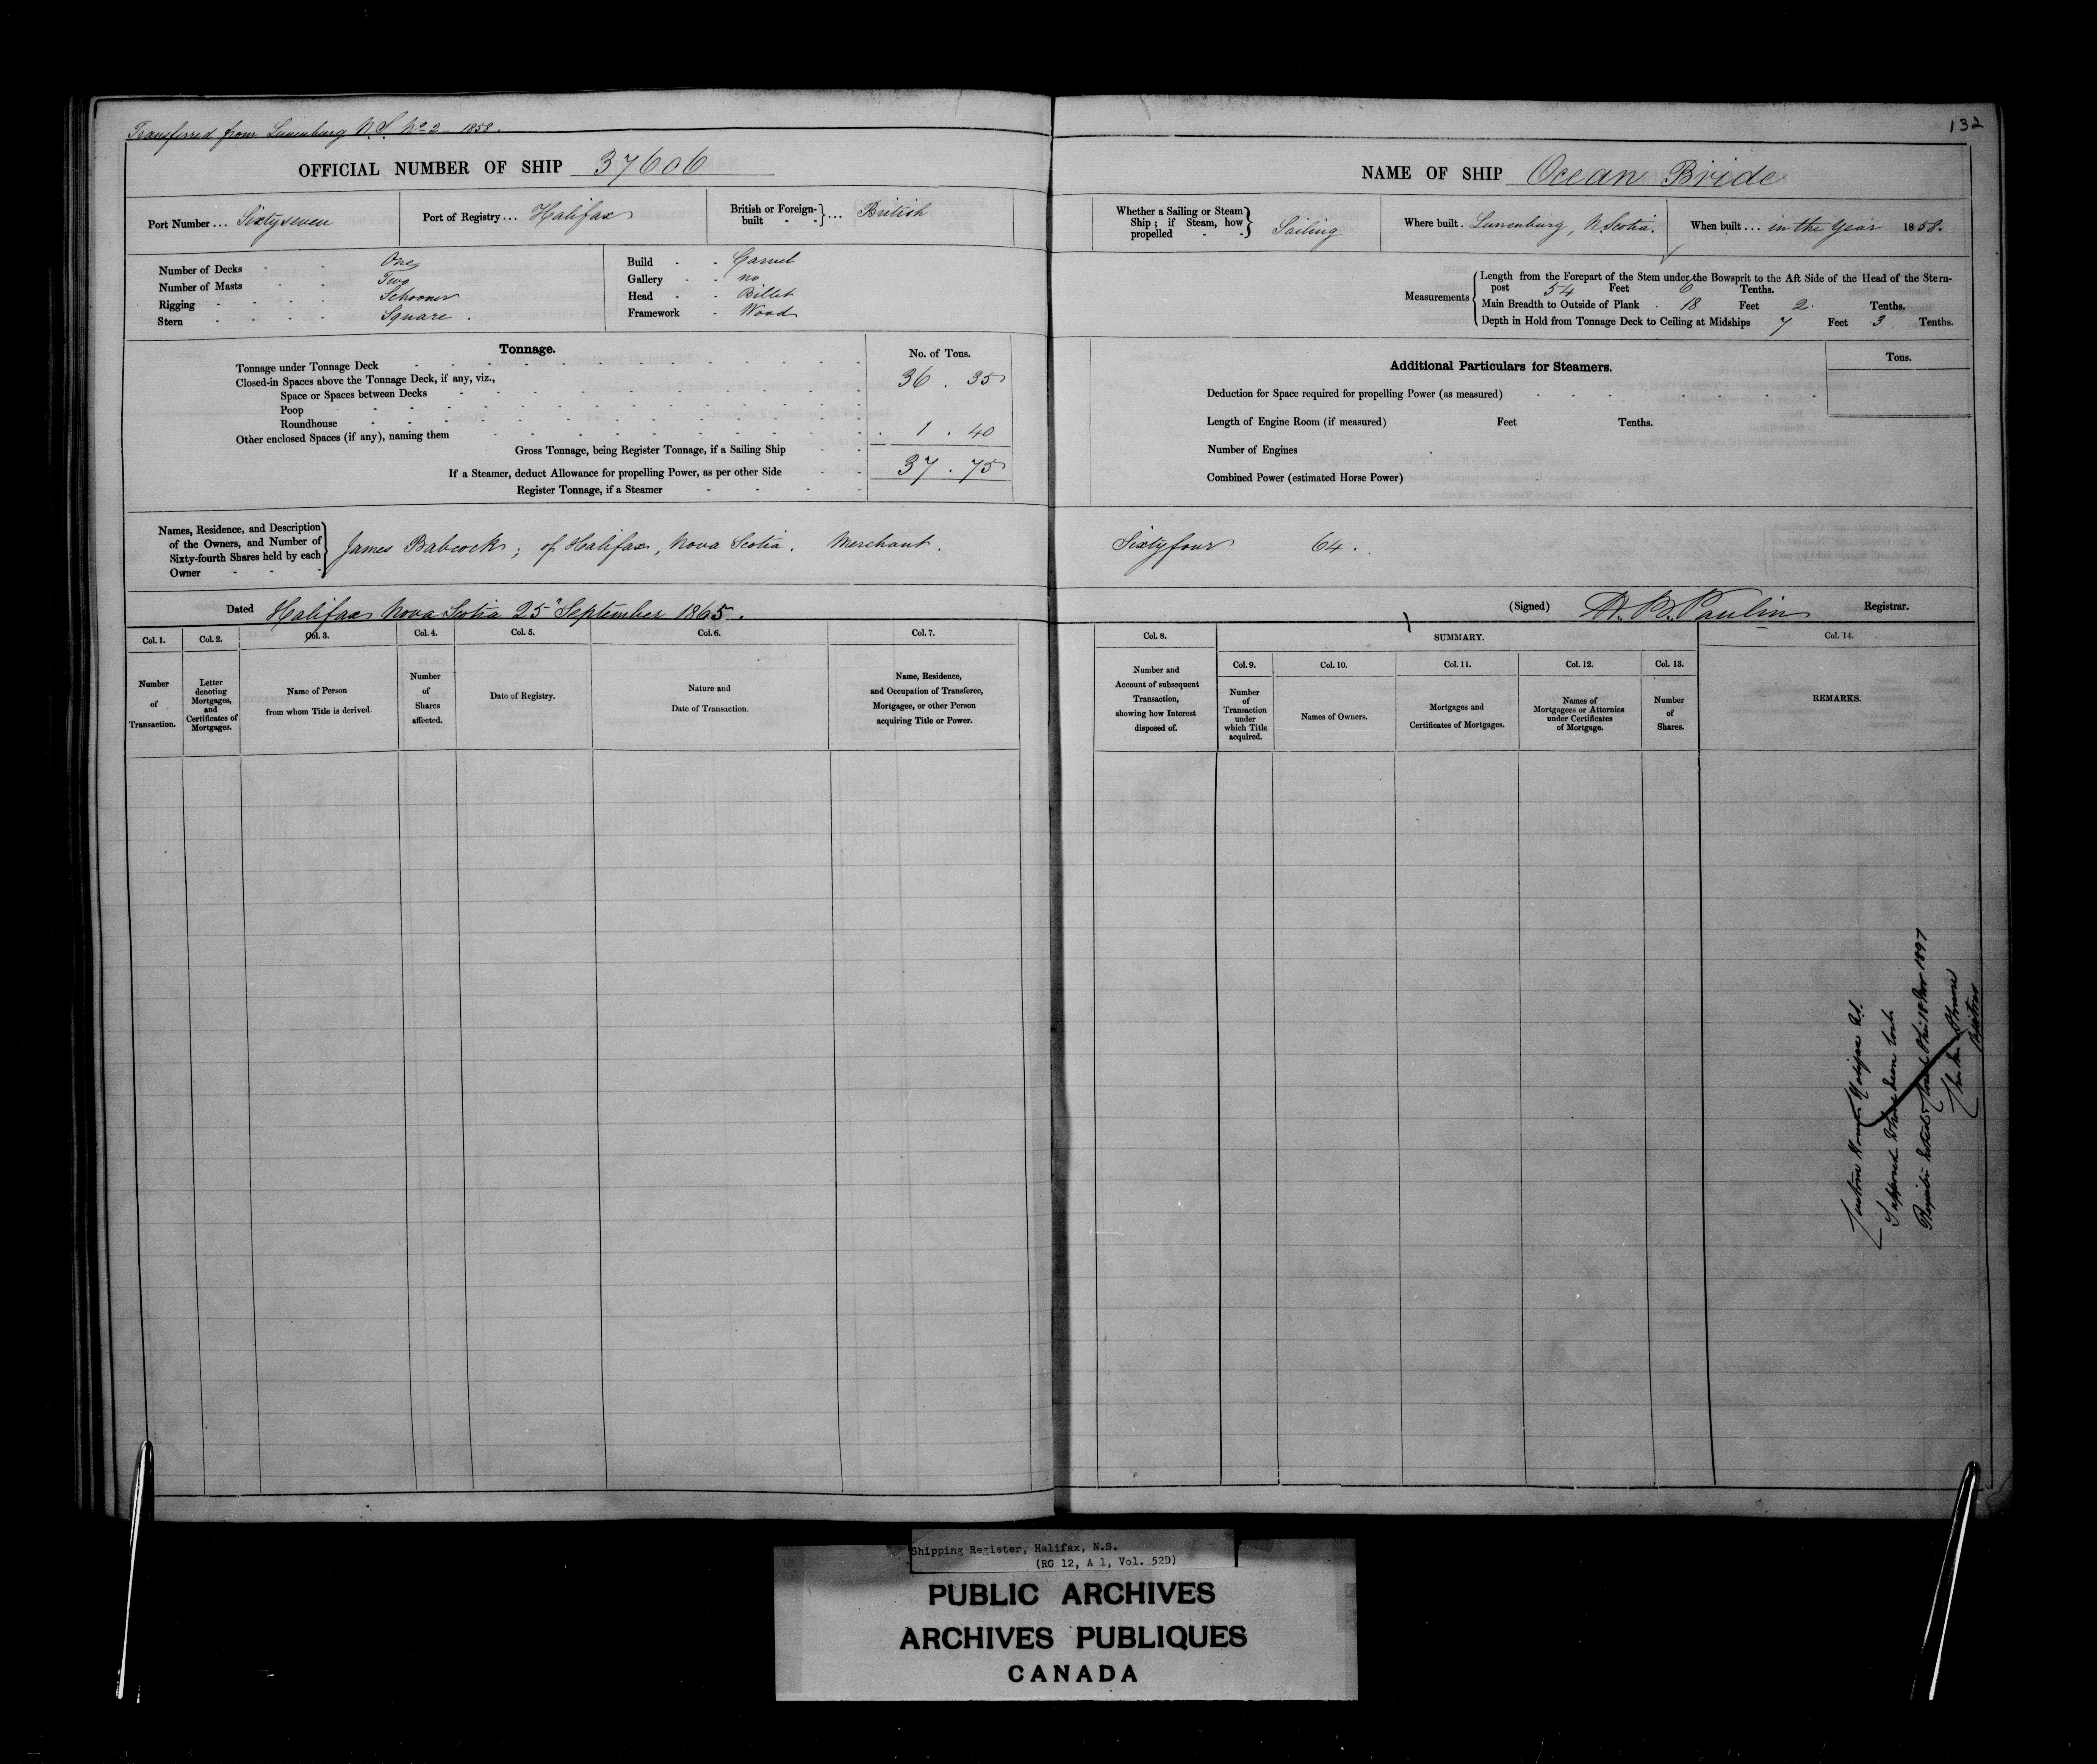 Transferred from Lunenburg N.S. No 2 - 1858.
132
OFFICIAL NUMBER OF SHIP 37606
NAME OF SHIP Ocean Bride
Port Number ... Sixty seven
Port of Registry ... Halifax
British or Foreign-built - - } ... British
Whether a Sailing or Steam Ship ; if Steam, how propelled - - } Sailing
Where built . Lunenburg, N. Scotia.
When built ... in the year 1858.
Number of Decks - - One
Number of Masts - - Two
Rigging - - - - Schooner
Stern - - - - Square .
Build - - Carvel
Gallery - - no
Head - - Billet
Framework - Wood
Measurements
Length from the Forepart of the Stem under the Bowsprit to the Aft Side of the Head of the Stern-
post 54 Feet 6 Tenths.
Main Breadth to Outside of Plank . 18 Feet 2. Tenths.
Depth in Hold from Tonnage Deck to Ceiling at Midships 7 Feet 3. Tenths.
Tonnage.
No. of Tons.
Tonnage under Tonnage Deck 36 . 35
Closed-in Spaces above the Tonnage Deck, if any, viz.,
Space or Spaces between Decks
Poop
Roundhouse
Other enclosed Spaces (if any), naming them 1 . 40
Gross Tonnage, being Register Tonnage, if a Sailing Ship 37 . 75
If a Steamer, deduct Allowance for propelling Power, as per other Side
Register Tonnage, if a Steamer
Additional Particulars for Steamers.
Tons.
Deduction for Space required for propelling Power (as measured)
Length of Engine Room (if measured) Feet Tenths.
Number of Engines
Combined Power (estimated Horse Power)
Names, Residence, and Description
of the Owners, and Number of
Sixty-fourth Shares held by each
Owner - - -
James Babcock ; of Halifax, Nova Scotia. Merchant.
Sixty four 64 .
Dated Halifax Nova Scotia 25" September 1865 .
(Signed) Registrar.
Col. 1.
Number
of
Transaction.
Col. 2.
Letter
denoting
Mortgages,
and
Certificates of
Mortgages.
Col. 3.
Name of Person
from whom Title is derived.
Col. 4.
Number
of
Shares
affected.
Col. 5.
Date of Registry.
Col. 6.
Nature and
Date of Transaction.
Col. 7.
Name, Residence,
and Occupation of Transferee,
Mortgagee, or other Person
acquiring Title or Power.
Col. 8.
Number and
Account of subsequent
Transaction,
showing how Interest
disposed of.
SUMMARY.
Col. 9.
Number
of
Transaction
under
which Title
acquired.
Col. 10.
Names of Owners.
Col. 11.
Mortgages and
Certificates of Mortgages.
Col. 12.
Names of
Mortgagees or Attornies
under Certificates
of Mortgage.
Col. 13.
Number
of
Shares.
Col. 14.
REMARKS.
Custom House Halifax N.S.
Supposed to have been lost
Register closed this 18 Nov 1897
Registrar
Shipping Register, Halifax, N.S.
(RG 12, A 1, Vol. 52D)
PUBLIC ARCHIVES
ARCHIVES PUBLIQUES
CANADA